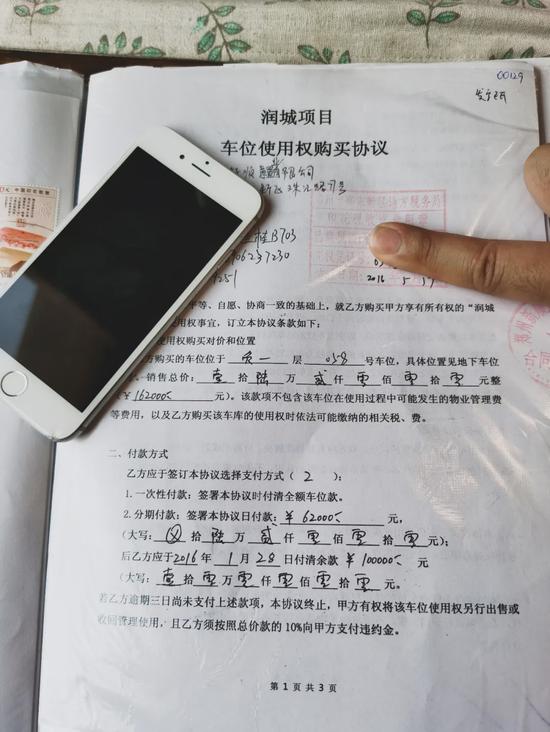 00129
润城项目
车位使用权购买协议
公司
B703
06237230
251
2016 5
平等、自愿、协商一致的基础上，就乙方购买甲方享有所有权的“润城
用权事宜，订立本协议条款如下：
使用权购买对价和位置
方购买的车位位于 负一 层 058 号车位，具体位置见地下车位
销售总价：壹 拾 陆 万 贰 仟 零 佰 零 拾 零 元整
￥162000 元）。该款项不包含该车位在使用过程中可能发生的物业管理费
等费用，以及乙方购买该车库的使用权时依法可能缴纳的相关税、费。
二、付款方式
乙方应于签订本协议选择支付方式（ 2 ）：
1.一次性付款：签署本协议时付清全额车位款。
2.分期付款：签署本协议日付款：￥62000 元，
（大写： 拾 陆 万 贰 仟 零 佰 零 拾 零 元）；
后乙方应于2016年 1 月 28 日付清余款 ￥100000 元
（大写：壹 拾 零 万 零 仟 零 佰 零 拾 零 元。
若乙方逾期三日尚未支付上述款项，本协议终止，甲方有权将该车位使用权另行出售或
收回管理使用，且乙方须按照总价款的10%向甲方支付违约金。
第 1 页 共 3 页